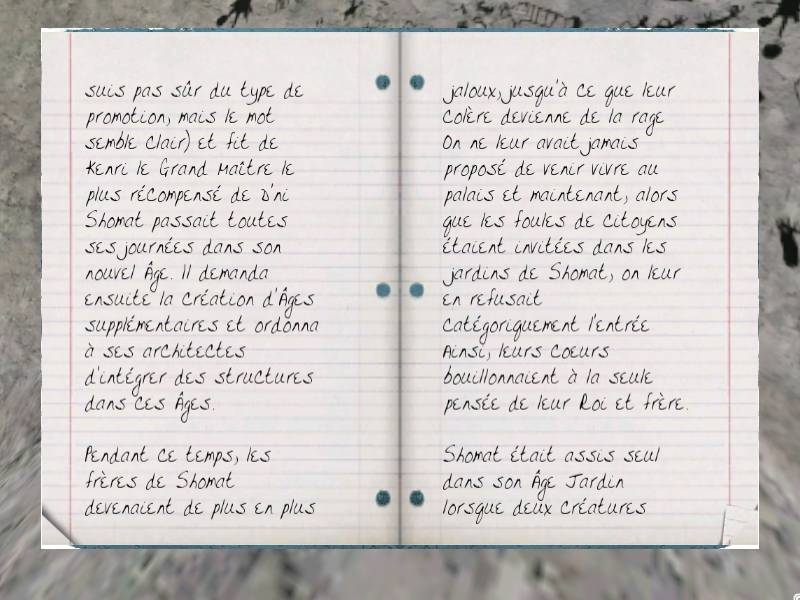 suis pas sûr du type de
promotion, mais le mot
semble clair) et fit de
Kenri le Grand Maître le
plus récompensé de D'ni
Shomat passait toutes
ses journées dans son
nouvel Âge. Il demanda
ensuite la création d'Âges
supplémentaires et ordonna
à ses architectes
d'intégrer des structures
dans ces Âges.
Pendant ce temps, les
frères de Shomat
devenaient de plus en plus
jaloux, jusqu'à ce que leur
colère devienne de la rage
On ne leur avait jamais
proposé de venir vivre au
palais et maintenant, alors
que les foules de citoyens
étaient invitées dans les
jardins de Shomat, on leur
en refusait
catégoriquement l'entrée
Ainsi, leurs coeurs
bouillonnaient à la seule
pensée de leur Roi et frère.
Shomat était assis seul
dans son Âge Jardin
lorsque deux créatures